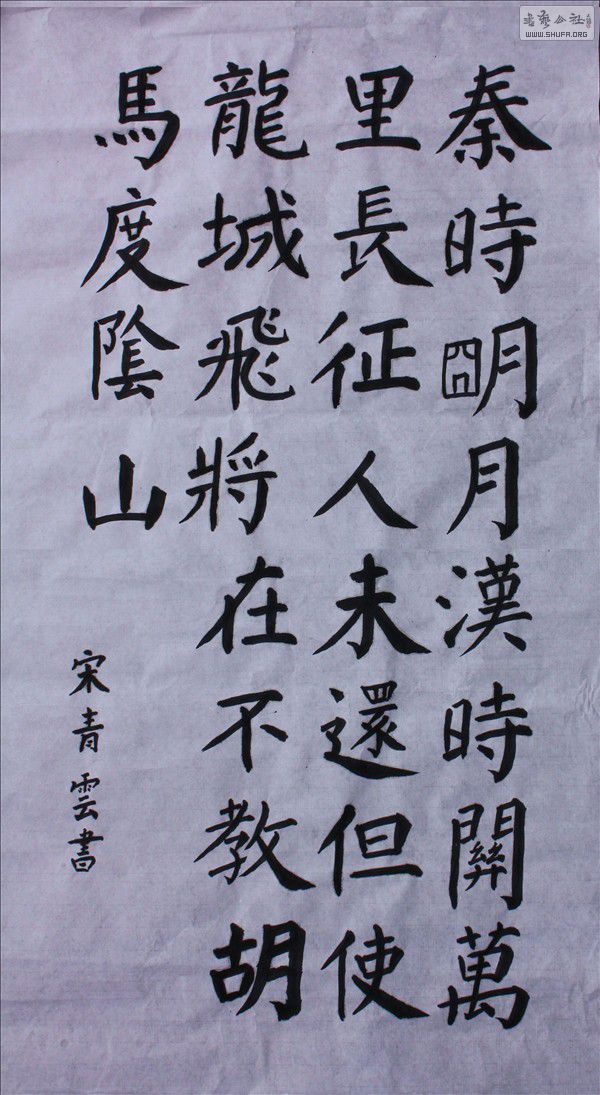 秦時朙月漢時關萬
里長征人未還但使
龍城飛將在不教胡
馬度陰山
宋青雲書
書藝公社
WWW.SHUFA.ORG